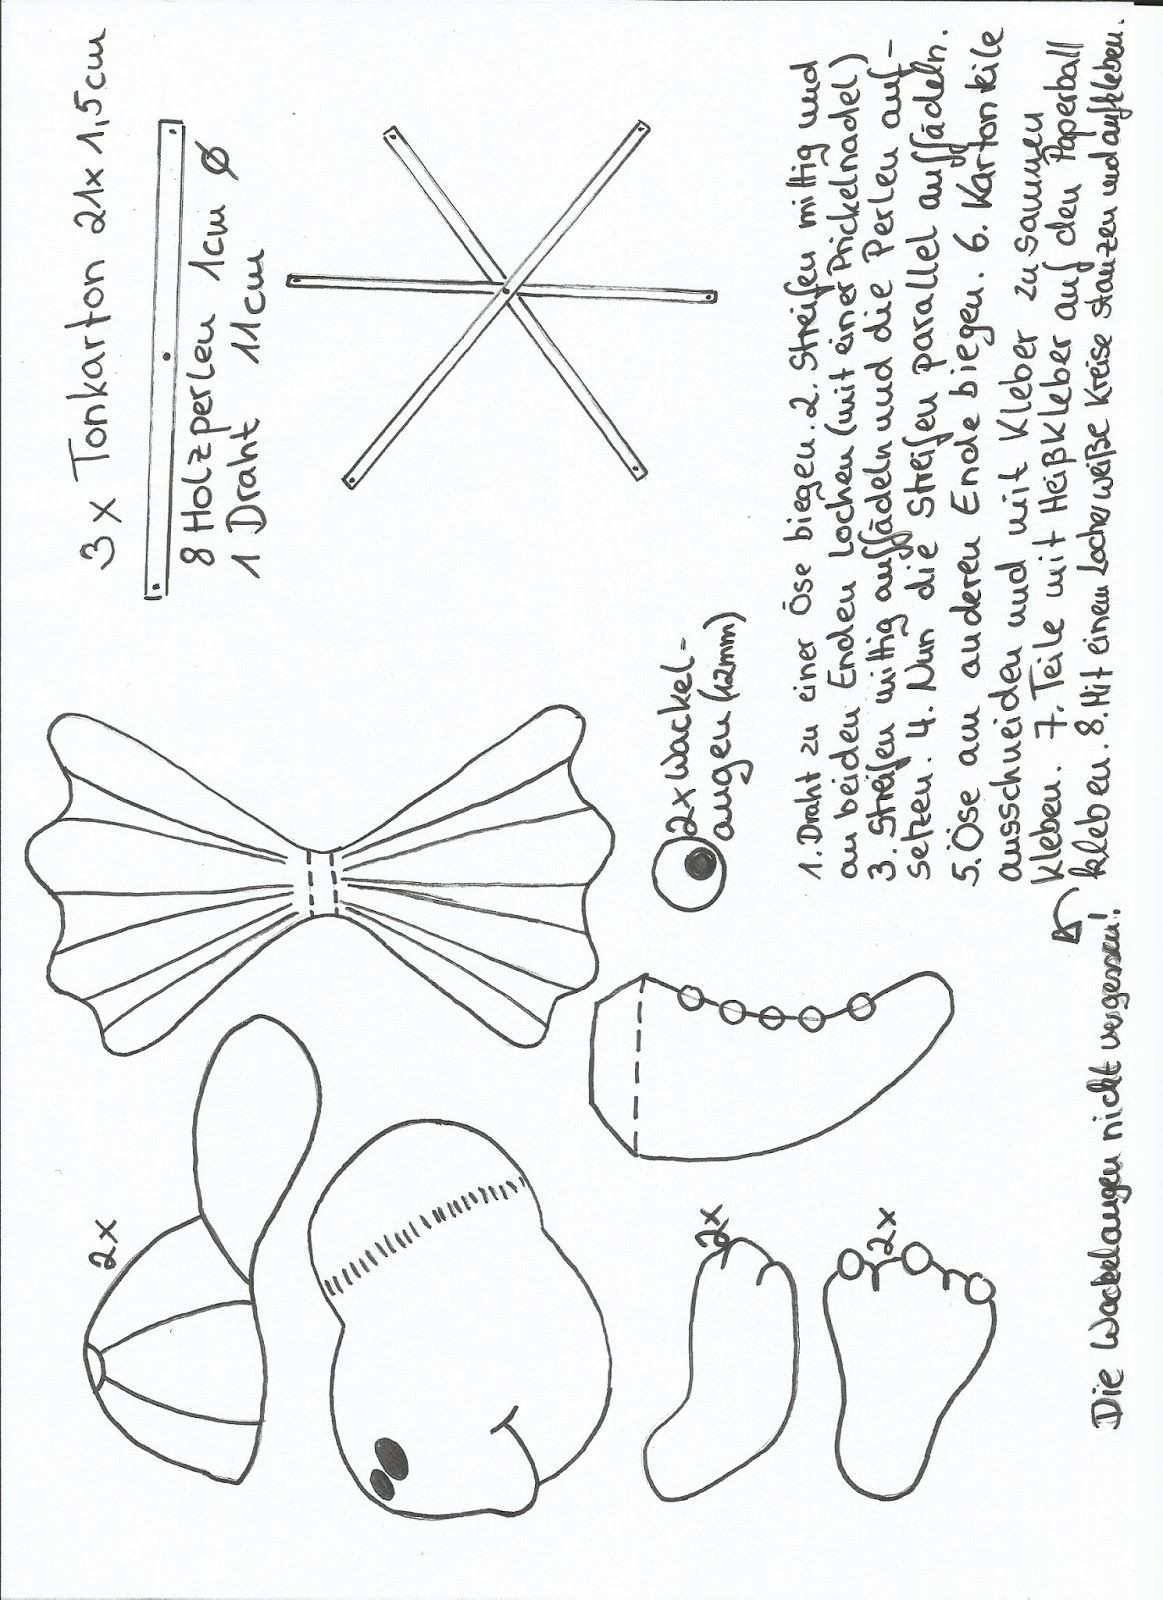 3x Tonkarton 21x1,5cm
8 Holzperlen 1cm Ø
1 Draht 11cm
2x Wackel-
augen (12mm)
2x
2x
2x
1. Draht zu einer Öse biegen. 2. Streifen mittig und
an beiden Enden Lochen (mit einer Prickelnadel)
3. Streifen mittig auffädeln und die Perlen auf-
setzen. 4. Nun die Streifen parallel auffädeln.
5. Öse am anderen Ende biegen. 6. Kartonteile
ausschneiden und mit Kleber zusammen
Kleben. 7. Teile mit Heißkleber auf den Paperball
kleben. 8. Mit einem Locher weiße Kreise stanzen und aufkleben.
Die Wackelaugen nicht vergessen!